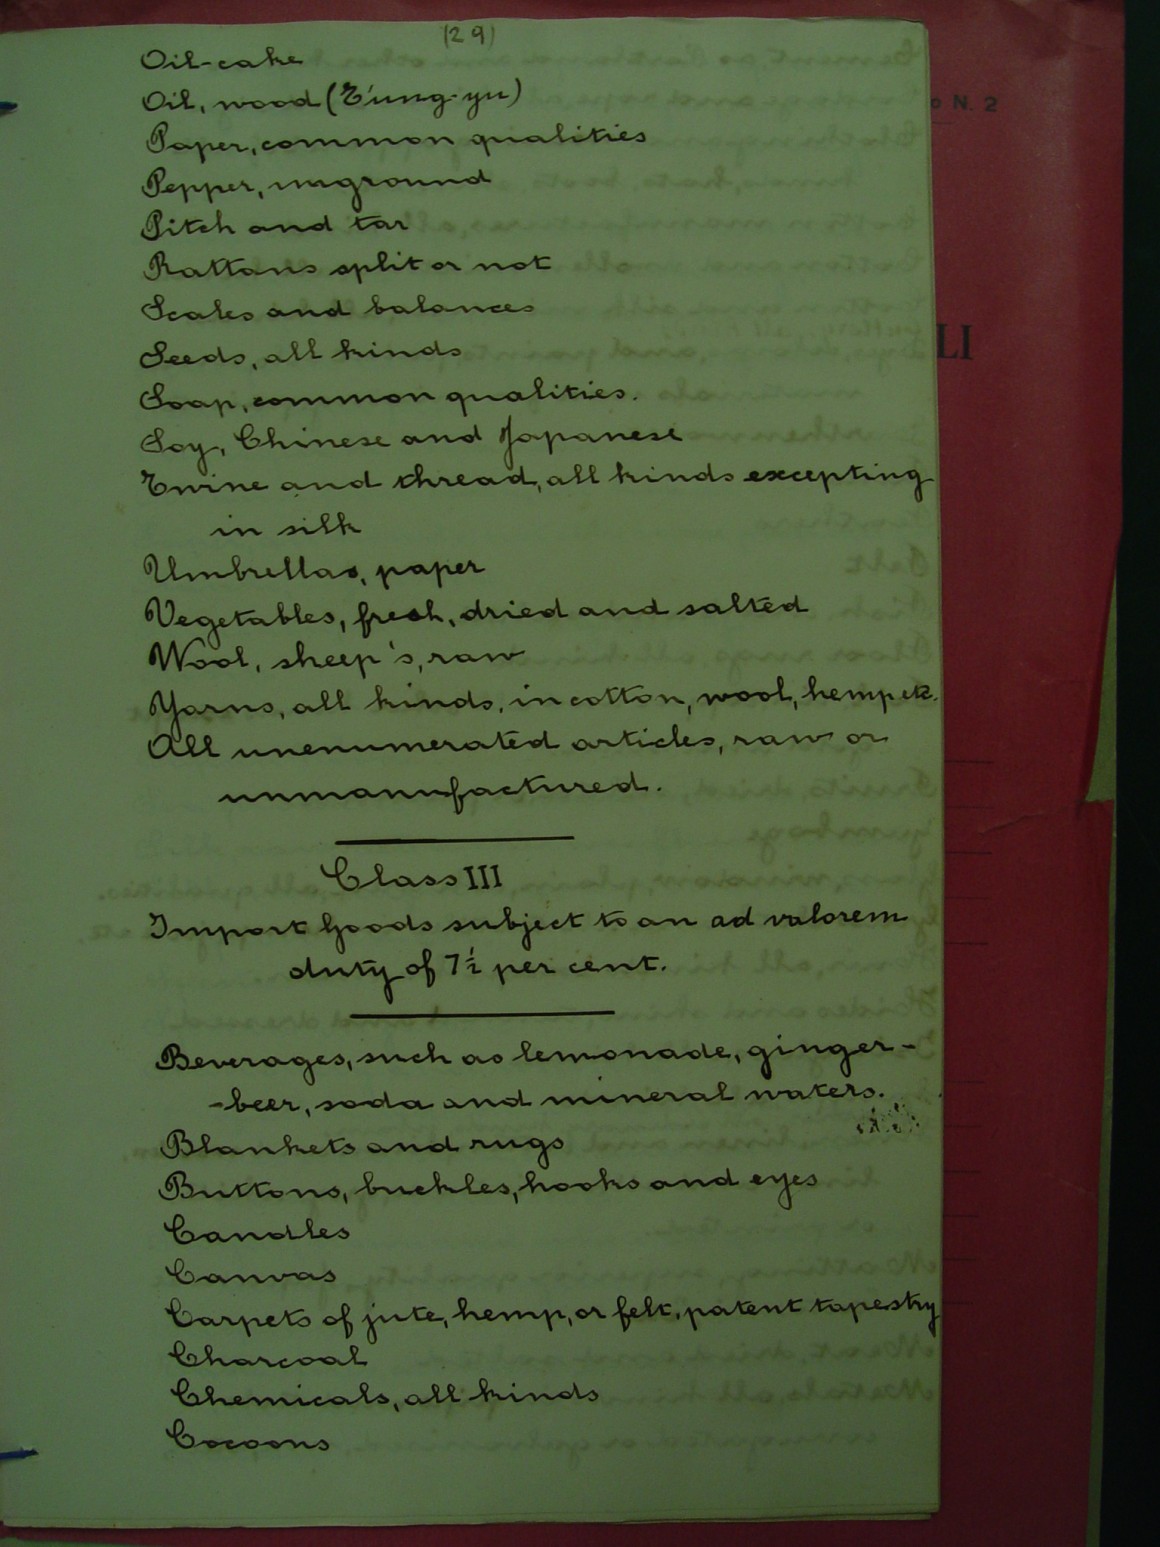 (29)
Oil-cake
Oil, wood (T'ung-yu)
Paper, common qualities
Pepper, unground
Pitch and tar
Rattans split or not
Scales and balances
Seeds, all kinds
Soap, common qualities.
Soy, Chinese and Japanese
Twine and thread, all kinds excepting
in silk
Umbrellas, paper
Vegetables, fresh, dried and salted
Wool, sheep's, raw
Yarns, all kinds, in cotton, wool, hemp etc.
All unenumerated articles, raw or
unmanufactured.
Class III
Import Goods subject to an ad valorem
duty of 7½ per cent.
Beverages, such as lemonade, ginger-
-beer, soda and mineral waters.
Blankets and rugs
Buttons, buckles, hooks and eyes
Candles
Canvas
Carpets of jute, hemp, or felt, patent tapestry
Charcoal
Chemicals, all kinds
Cocoons
N. 2
LI